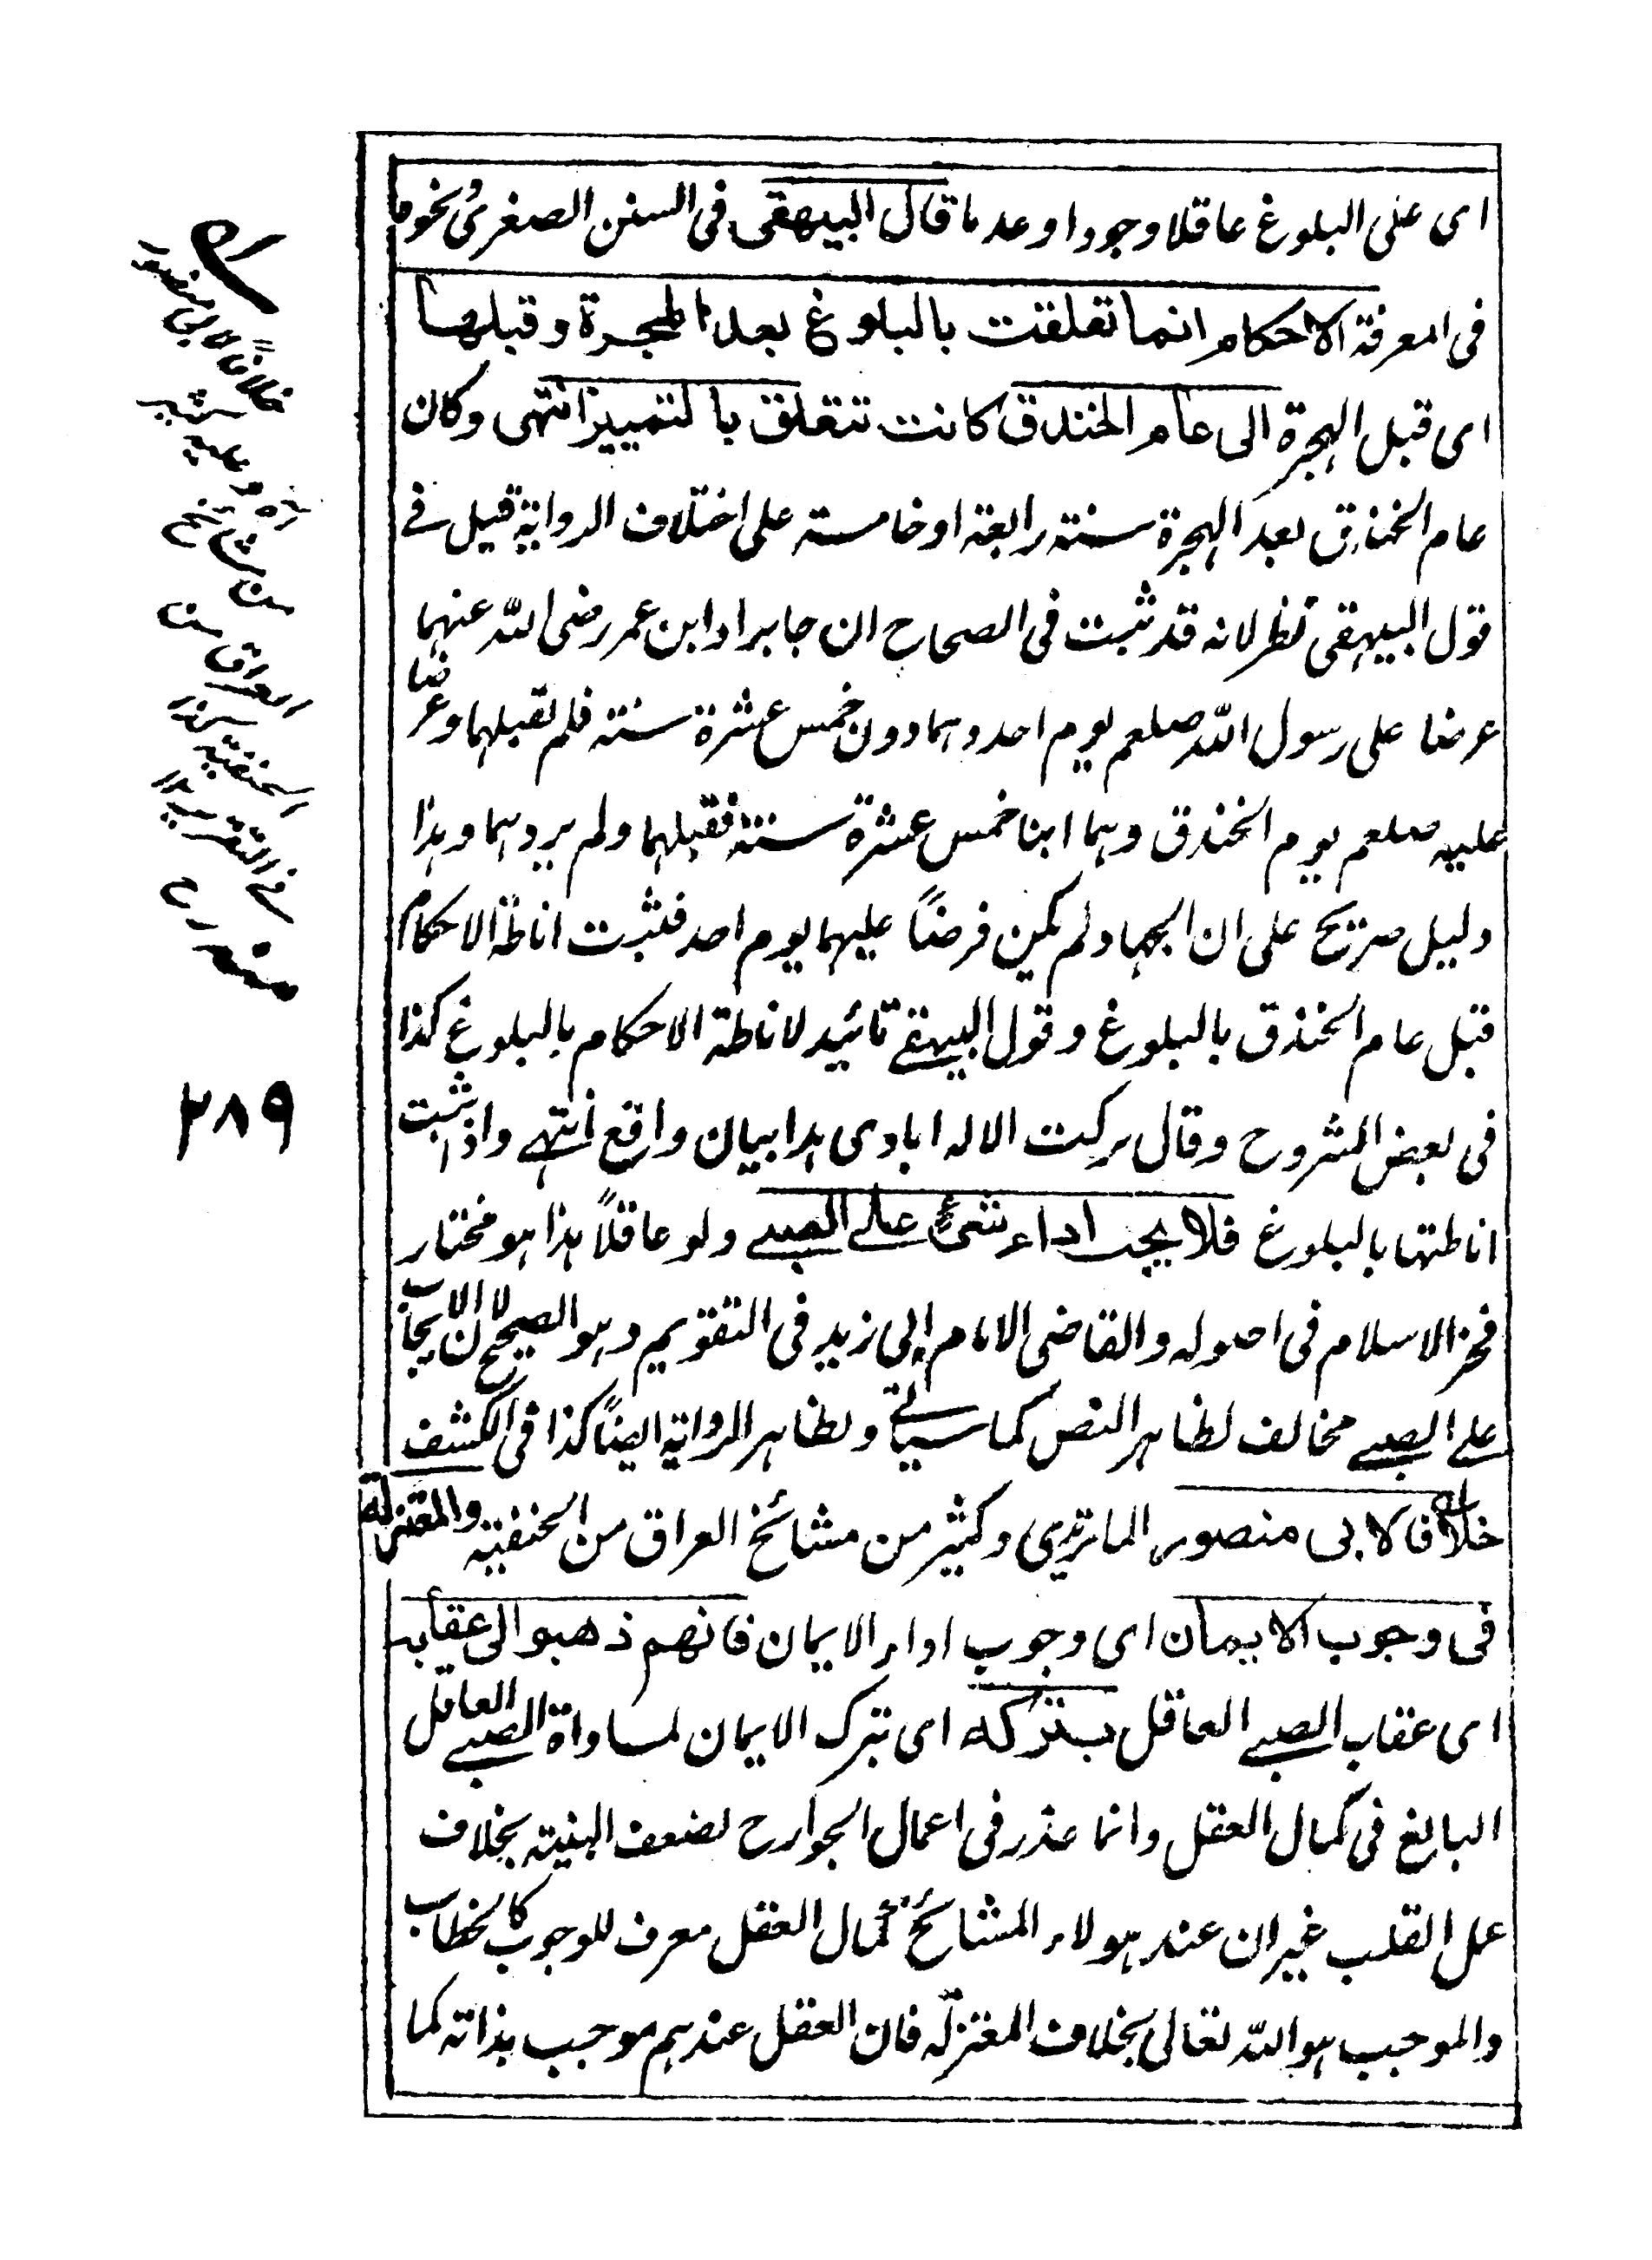 اى على البلوغ عاقلا وجودا وعدما قال البيهقى فى السنن الصغرىٰ نحوه
فى المعرفة الاحكام انما تعلقت بالبلوغ بعد الهجرة وقبلها
اى قبل الهجرة الى عام الخندق كانت تتعلق بالتمييز انتهى وكان
عام الخندق بعد الهجرة سنته رابعة او خامسته على اختلاف الرواية قيل فى
قول البيهقى نظر لانه قد ثبت فى الصحاح ان جابرا وابن عمر رضى الله عنهما
عرضا على رسول الله صلعم يوم احد وهما دون خمس عشرة سنته فلم يقبلهما وعرضا
عليه صلعم يوم الخندق وهما ابنا خمس عشرة سنته فقبلهما ولم يردهما وهذا
دليل صريح على ان الجهاد لم يكن فرضاً عليهما يوم احد فثبت اناطة الاحكام
قبل عام الخندق بالبلوغ وقول البيهقے تائيد لاناطة الاحكام بالبلوغ كذا
فى بعض الشروح وقال بركت الاله ابادى هذا بيان واقع انتہے واذا ثبت
اناطتها بالبلوغ فلا يجب اداء شئ علے الصبے ولو عاقلاً هذا هو مختار
فخر الاسلام فى اصوله والقاضى الامام ابى زيد فى التقويم وهو الصحيح لان الايجاب
علے الصبے مخالف لظاهر النص كما سياتے ولظاهر الرواية ايضاً كذا فى الكشف
خلافا لابى منصور الماتريدى وكثير من مشائخ العراق من الحنفية والمعتزلة
فى وجوب الايمان اى وجوب اداء الايمان فانهم ذهبوا الى عقابه
اى عقاب الصبے العاقل بتركه اى بترك الايمان لمساواة الصبے العاقل
البالغ فى كمال العقل وانما عذر فى اعمال الجوارح لضعف البنية بخلاف
عمل القلب غير ان عند هولاء المشائخ كمال العقل معرف للوجوب كالخطاب
والموجب هو الله تعالى بخلاف المعتزلة فان العقل عندهم موجب بذاته كما
خلافاً لابى منصور
العراق من
الحنفية
فى التقرير
منه رح
٢٨٩